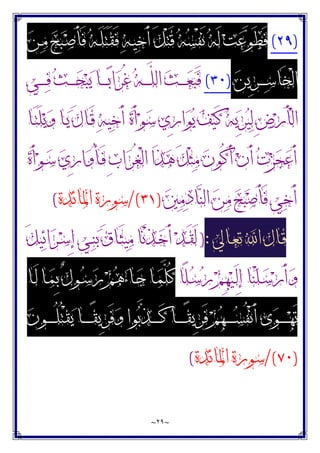 (٢٩) فَطَوَّعَتْ لَهُ نَفْسُهُ قَتْلَ أَخِيهِ فَقَتَلَهُ فَأَصْبَحَ مِنَ
الْخَاسِرِينَ (٣٠) فَبَعَثَ اللَّهُ غُرَابًا يَبْحَثُ فِي
الْأَرْضِ لِيُرِيَهُ كَيْفَ يُوَارِي سَوْأَةَ أَخِيهِ قَالَ يَا وَيْلَتَا
أَعَجَزْتُ أَنْ أَكُونَ مِثْلَ هَذَا الْغُرَابِ فَأُوَارِيَ سَوْأَةَ
أَخِي فَأَصْبَحَ مِنَ النَّادِمِينَ (٣١)/سورة المائدة)
قال الله تعالى : (لَقَدْ أَخَذْنَا مِيثَاقَ بَنِي إِسْرَائِيلَ
وَأَرْسَلْنَا إِلَيْهِمْ رُسُلًا كُلَّمَا جَاءَهُمْ رَسُولٌ بِمَا لَا
تَهْوَى أَنْفُسُهُمْ فَرِيقًا كَذَّبُوا وَفَرِيقًا يَقْتُلُونَ
(٧٠)/سورة المائدة)
~٢٩~